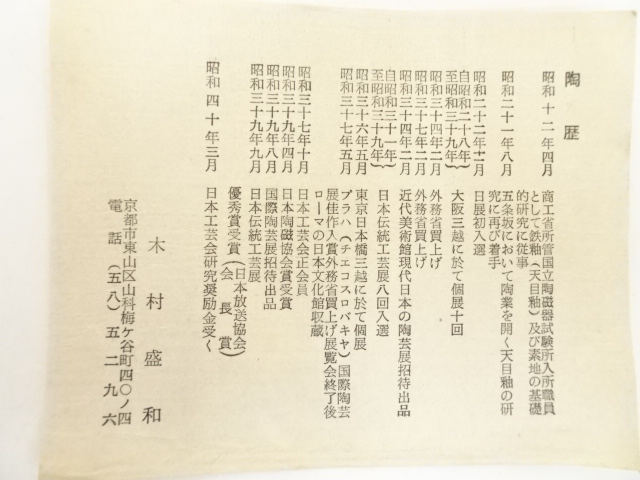 陶歴
昭和十二年四月 商工省所管国立陶磁器試験所入所職員
として鉄釉(天目釉)及び素地の基礎
的研究に従事
昭和二十一年八月 五条坂において陶業を開く天目釉の研
究に再び着手
昭和二十二年十二月 日展初入選
自昭和二十八年
至昭和三十九年 大阪三越に於て個展十回
昭和三十四年二月 外務省買上げ
昭和三十七年二月 外務省買上げ
昭和三十四年二月 近代美術館現代日本の陶芸展招待出品
自昭和三十一年
至昭和三十九年 日本伝統工芸展八回入選
昭和三十六年五月 東京日本橋三越に於て個展
昭和三十七年五月 プラハ(チェコスロバキヤ)国際陶芸
展佳作入賞外務省買上げ展覧会終了後
ローマの日本文化館収蔵
昭和三十七年十月 日本工芸会正会員
昭和三十九年四月 日本陶磁協会賞受賞
昭和三十九年八月 国際陶芸展招待出品
昭和三十九年九月 日本伝統工芸展
優秀賞受賞(日本放送協会会長賞)
昭和四十年三月 日本工芸会研究奨励金受く
木村盛和
京都市東山区山科梅ケ谷町四〇ノ四
電話(五八)五二九六